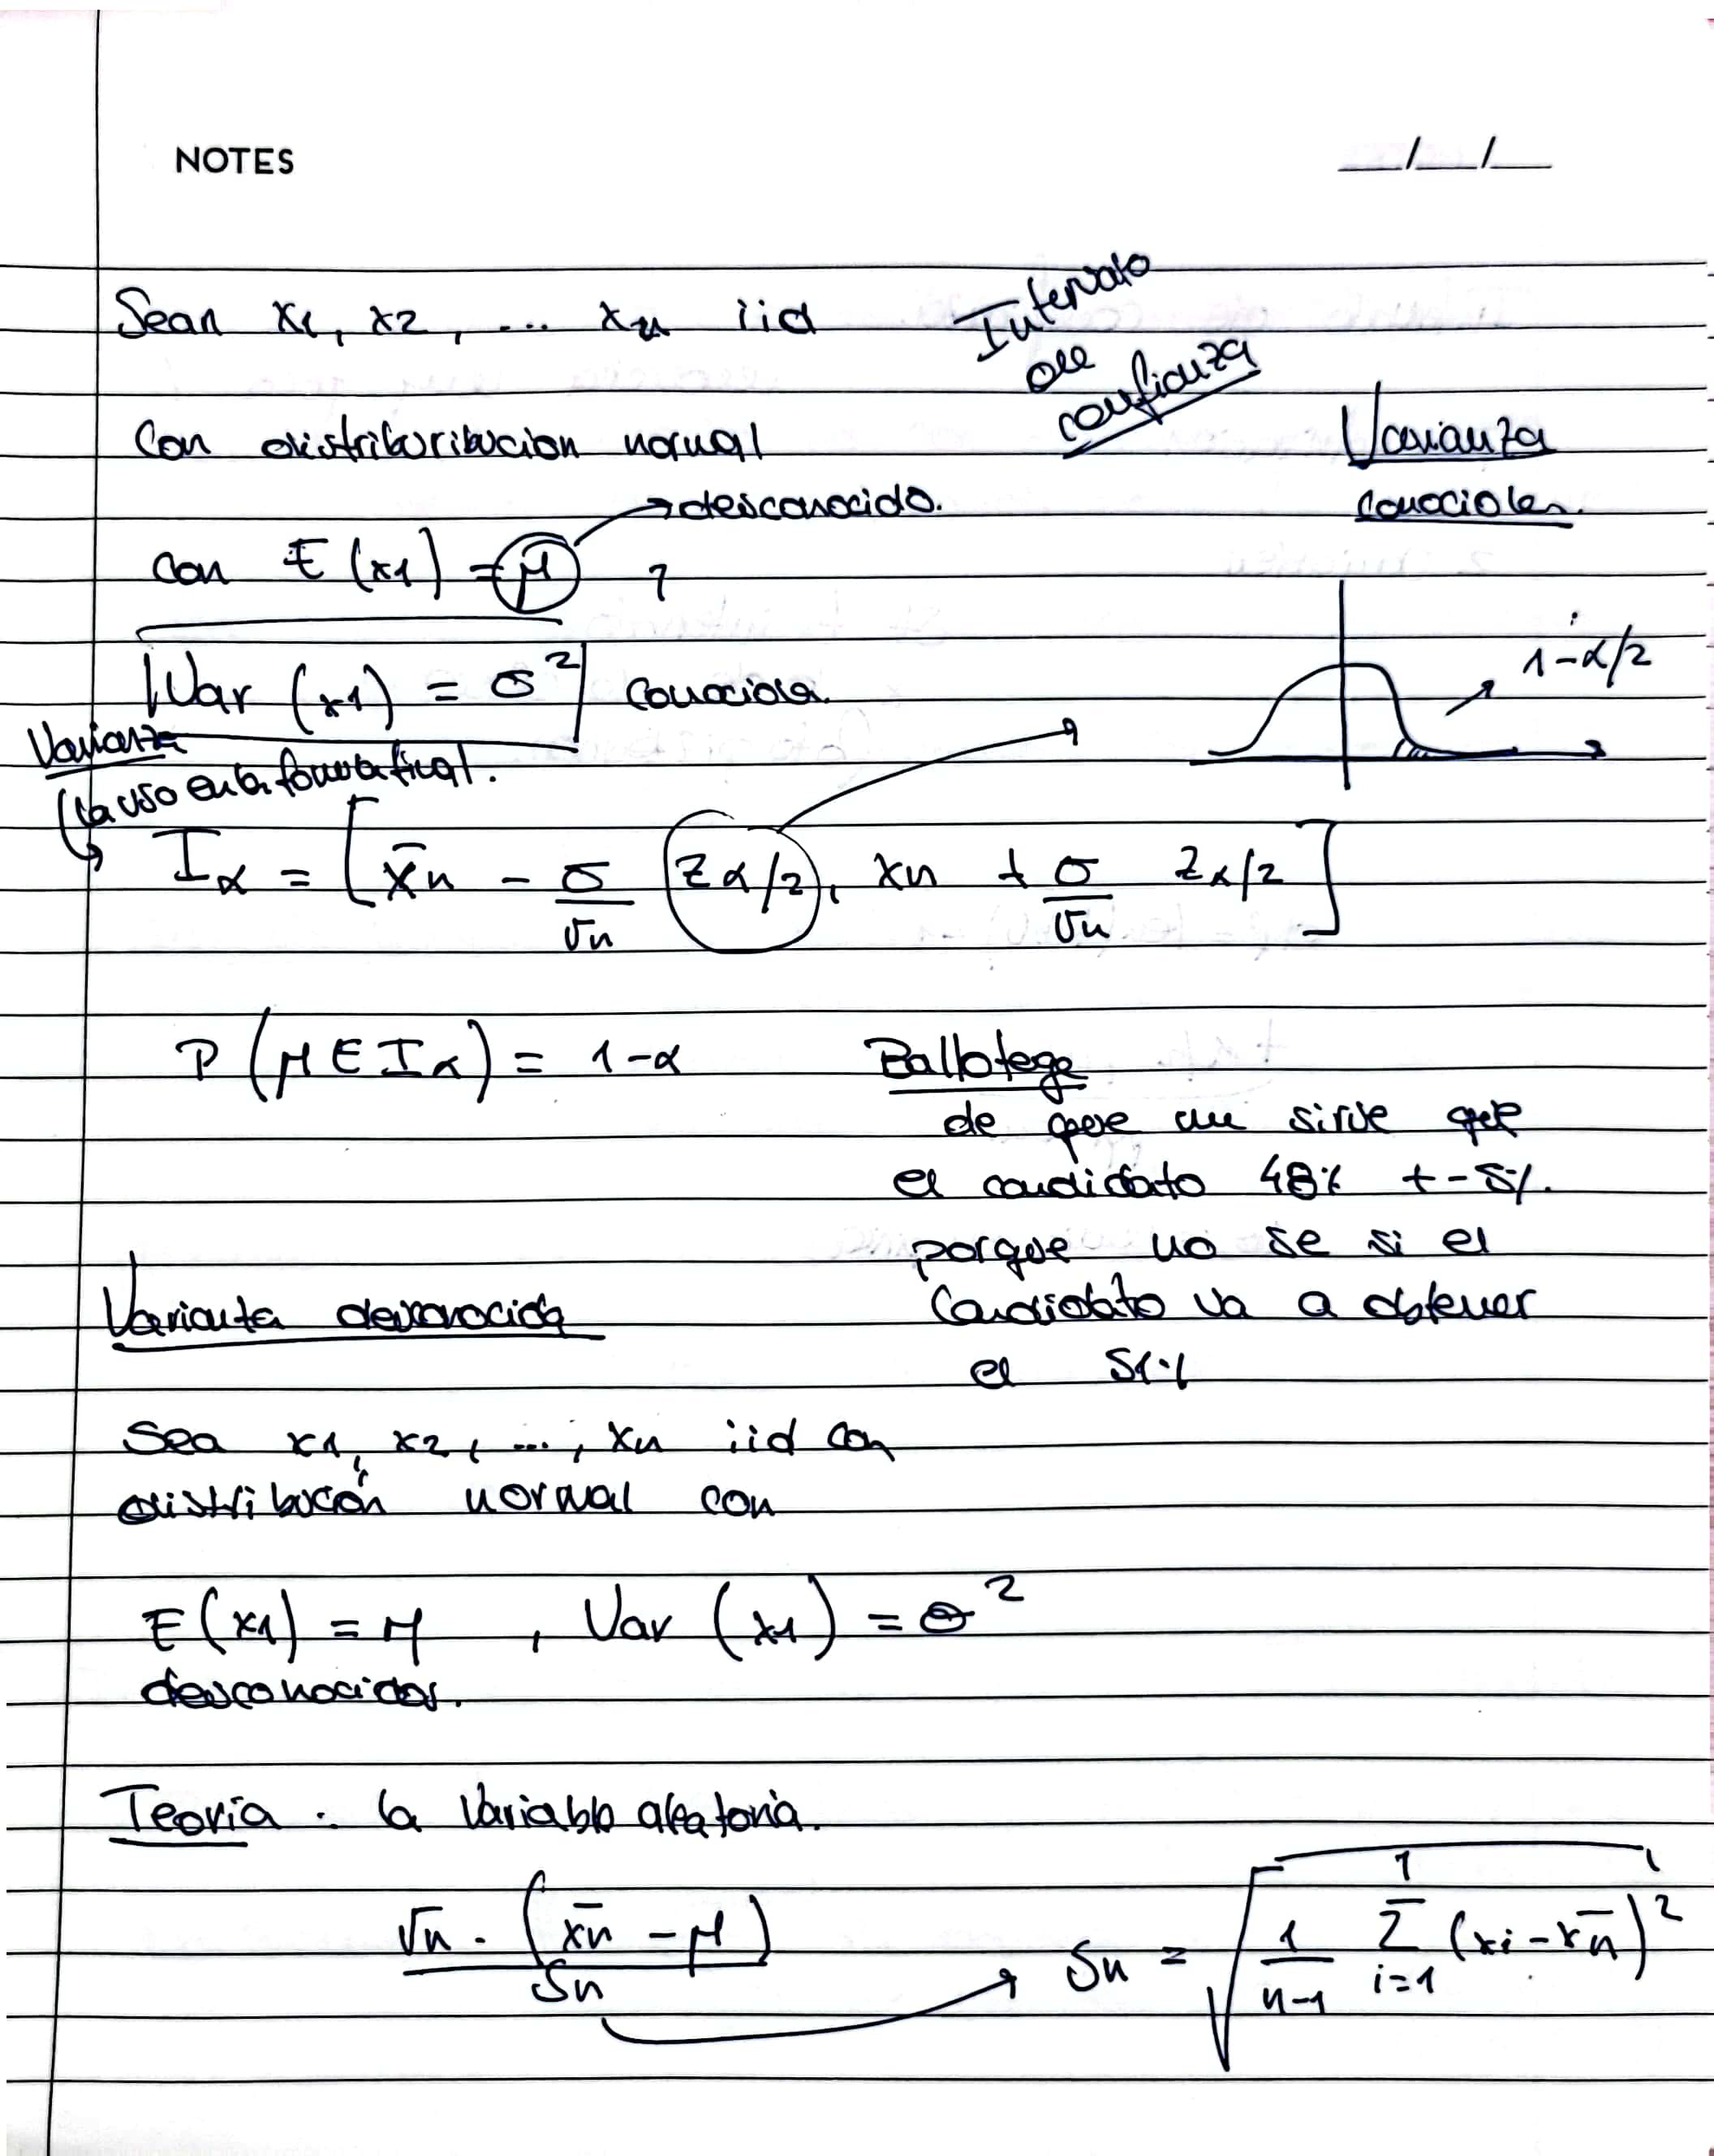 NOTES
__/__/__
Sean x1, x2, ... xn iid
Intervalo
de
confianza
Con distriburibucion normal
Varianza
conocida.
→ desconocido.
con E (x1) = μ ?
1-α/2
Var (x1) = σ² conocida.
Varianza
La uso en la formula final.
Iα = [ x̄n - σ/√n Zα/2, xn + σ/√n Zα/2 ]
P (μ ∈ Iα) = 1-α
Ballotege
de que me sirve que
el candidato 48% +- 5%.
porque no se si el
Candidato va a obtener
el 51%
Varianza desconocida
Sea x1, x2, ..., xn iid con
distribución normal con
E (x1) = μ , Var (x1) = σ²
desconocidos.
Teoría : la variable aleatoria.
√n . (x̄n - μ) / Sn → Sn = √ 1/n-1 Σ i=1 (xi - x̄n)²